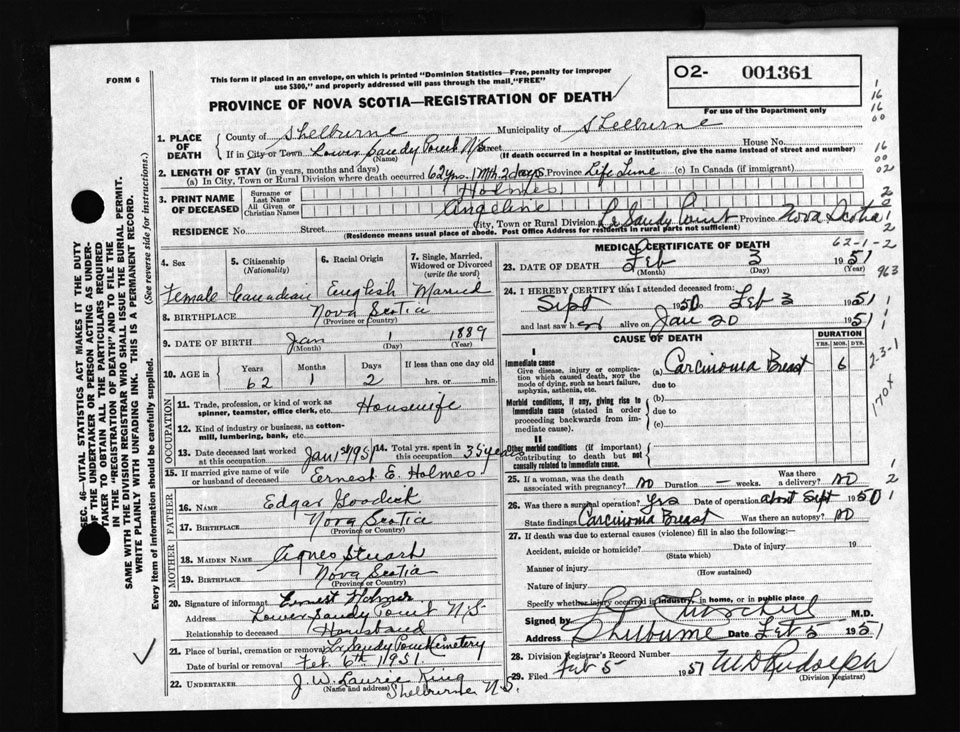 FORM 6
This form if placed in an envelope, on which is printed "Dominion Statistics—Free, penalty for improper
use $300," and properly addressed will pass through the mail, "FREE"
O2- 001361
For use of the Department only
PROVINCE OF NOVA SCOTIA—REGISTRATION OF DEATH
1. PLACE OF DEATH
County of Shelburne Municipality of Shelburne
If in City or Town Lower Sandy Point N.S. Street House No.
(Name) (If death occurred in a hospital or institution, give the name instead of street and number)
2. LENGTH OF STAY (in years, months and days)
(a) In City, Town or Rural Division where death occurred 62 yrs. 1 Mth. 2 days Province Life Time (c) In Canada (if immigrant)
3. PRINT NAME OF DECEASED
Surname or Last Name Holmes
All Given or Christian Names Angeline
RESIDENCE No. Street City, Town or Rural Division Lr Sandy Point Province Nova Scotia
(Residence means usual place of abode. Post Office Address for residents in rural parts not sufficient)
4. Sex
Female
5. Citizenship (Nationality)
Canadian
6. Racial Origin
English
7. Single, Married, Widowed or Divorced (write the word)
Married
8. BIRTHPLACE Nova Scotia
(Province or Country)
9. DATE OF BIRTH Jan 1 1889
(Month) (Day) (Year)
10. AGE in
Years Months Days If less than one day old
62 1 2 hrs. or min.
OCCUPATION
11. Trade, profession or kind of work as spinner, teamster, office clerk, etc. Housewife
12. Kind of industry or business, as cotton-mill, lumbering, bank, etc.
13. Date deceased last worked at this occupation Jan 1st 1951
14. Total yrs. spent in this occupation 35 years
15. If married give name of wife or husband of deceased Ernest E. Holmes
FATHER
16. NAME Edgar Goodick
17. BIRTHPLACE Nova Scotia
(Province or Country)
MOTHER
18. MAIDEN NAME Agnes Stuart
19. BIRTHPLACE Nova Scotia
(Province or Country)
20. Signature of informant Ernest Holmes
Address Lower Sandy Point N.S.
Relationship to deceased Housband
21. Place of burial, cremation or removal Lr Sandy Point Cemetery
Date of burial or removal Feb. 6th 1951.
22. UNDERTAKER J. W. Laurie King
(Name and address) Shelburne N.S.
MEDICAL CERTIFICATE OF DEATH
62-1-2
23. DATE OF DEATH Feb 3 1951
(Month) (Day) (Year)
24. I HEREBY CERTIFY that I attended deceased from:
Sept 1950 to Feb 3 1951
and last saw h er alive on Jan 20 1951
CAUSE OF DEATH
DURATION
YRS. MOS. DYS.
I
Immediate cause
Give disease, injury or complication which caused death, not the mode of dying, such as heart failure, asphyxia, asthenia, etc.
(a) Carcinoma Breast 6
due to
Morbid conditions, if any, giving rise to immediate cause (stated in order proceeding backwards from immediate cause).
(b)
due to
(c)
II
Other morbid conditions (if important) contributing to death but not causally related to immediate cause.
25. If a woman, was the death associated with pregnancy? no Duration — weeks. Was there a delivery? no
26. Was there a surgical operation? Yes Date of operation about Sept 1950
State findings Carcinoma Breast Was there an autopsy? no
27. If death was due to external causes (violence) fill in also the following:—
Accident, suicide or homicide? Date of injury 19
(State which)
Manner of injury
(How sustained)
Nature of injury
Specify whether injury occurred in industry, in home, or in public place
Signed by Churchill M.D.
Address Shelburne Date Feb 5 1951
28. Division Registrar's Record Number
29. Filed Feb 5 1951 W D Rudolph
(Division Registrar)
SEC. 46—VITAL STATISTICS ACT MAKES IT THE DUTY
OF THE UNDERTAKER OR PERSON ACTING AS UNDER-
TAKER TO OBTAIN ALL THE PARTICULARS REQUIRED
IN THE "REGISTRATION OF DEATH" AND TO FILE THE
SAME WITH THE DIVISION REGISTRAR WHO SHALL ISSUE THE BURIAL PERMIT.
WRITE PLAINLY WITH UNFADING INK. THIS IS A PERMANENT RECORD.
Every item of information should be carefully supplied. (See reverse side for instructions.)
1
16
16
00
16
00
02
963
2-3-1
170X
1
2
1